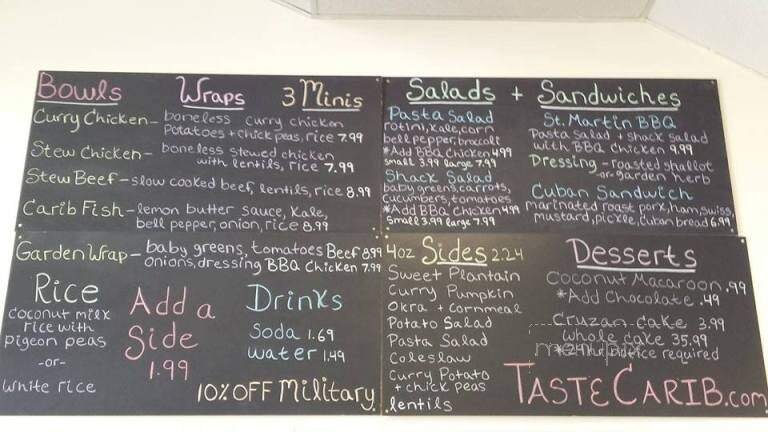 Bowls Wraps 3 Minis
Curry Chicken- boneless curry chicken
potatoes + chick peas, rice 7.99
Stew Chicken- boneless stewed chicken
with lentils, rice 7.99
Stew Beef- slow cooked beef, lentils, rice 8.99
Carib Fish- lemon butter sauce, kale,
bell pepper, onion, rice 8.99
Garden Wrap- baby greens, tomatoes Beef 8.99
onions, dressing BBQ Chicken 7.99
Rice
coconut milk
rice with
pigeon peas
-or-
white rice
Add a
Side
1.99
Drinks
Soda 1.69
water 1.49
10% OFF Military
Salads + Sandwiches
Pasta Salad
rotini, kale, corn
bell pepper, brocoli
*Add BBQ Chicken 4.99
small 3.99 large 7.99
Shack Salad
baby greens, carrots,
cucumbers, tomatoes
*Add BBQ Chicken 4.99
small 3.99 large 7.99
St. Martin BBQ
Pasta Salad + shack salad
with BBQ Chicken 9.99
Dressing - roasted shallot
-or- garden herb
Cuban Sandwich
marinated roast pork, ham, swiss,
mustard, pickle, Cuban bread 6.99
4oz Sides 2.24
Sweet Plantain
Curry Pumpkin
Okra + cornmeal
Potato Salad
Pasta Salad
Coleslaw
Curry Potato
+ chick peas
lentils
Desserts
Coconut Macaroon .99
*Add Chocolate .49
Cruzan Cake 3.99
whole cake 35.99
notice required
TASTECARIB.com